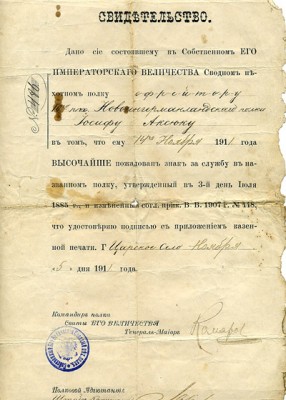 СВИДѢТЕЛЬСТВО.
Дано сіе состоящему въ Собственномъ ЕГО
ИМПЕРАТОРСКАГО ВЕЛИЧЕСТВА Сводномъ пѣ-
хотномъ полку ефрейтору
Новоингерманландскаго полка
Іосифу Аксюку
въ томъ, что ему 14го Ноября 1911 года
ВЫСОЧАЙШЕ пожалованъ знакъ за службу въ на-
званномъ полку, утвержденный въ 3-й день Іюля
1885 г., и измѣненный согл. прик. В. В. 1907 г. № 448,
что удостовѣряю подписью съ приложеніемъ казен-
ной печати. Г Царское Село Ноября
дня 1911 года.
Командиръ полка
Свиты ЕГО ВЕЛИЧЕСТВА
Генералъ-Маіоръ
Полковой Адъютантъ: